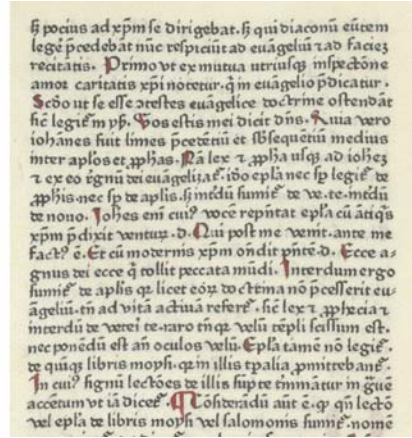 sꝫ pocius ad xp̄m se dirigebat. sꝫ qui diaconū eūtem
legē p̄cedebāt nūc respiciūt ad euāgeliū ⁊ ad faciez
recitātis. Primo vt ex mutua utriusqꝫ inspectōne
amor caritatis xp̄i notetur. q̄ in euāgelio p̄dicatur.
Scd̄o ut se esse atestes euāgelice doctrine ostendāt
sic legiť in ps̄. Vos estis mei dicit dn̄s. Quia vero
iohānes fuit limes p̄cedētiū et sb̄sequētiū medius
inter aplos et ꝓphas. Nā lex ⁊ ꝓpha usqꝫ ad iohez
⁊ ex eo regnū dei euāgelizať. iđo epl̄a nec sp̄ legiť de
ꝓphis. nec sp̄ de aplis. sꝫ īterdū sumiť de ve. te. īterdū
de nouo. Johēs eni cuiꝰ vocē rep̄ntat epl̄a cū ātiqis
xp̄m p̄dixit venturꝫ. d. Qui post me venit. ante me
factꝰ ē. Et cū modernis xp̄m ondit p̄ntē. d. Ecce a
gnus dei ecce q̄ tollit peccata mūdi. Interdum ergo
sumiť de aplis qꝛ licet eoꝝ doctrina nō p̄cesserit eu-
āgeliū. tn̄ ad vitā actiuā referť. sic lex ⁊ ꝓphecia ⁊
interdū de veteri te. raro tn̄ qꝛ velū tēpli scissum est.
nec ponēdū est añ oculos velū. Epl̄a tamē nō legiť
de quiqꝫ libris moysi. qꝛ in illis tp̄alia p̄mittebanť.
In cuiꝰ signū lectōes de illis sūpte tm̄inātur in gͣuē
accētum vt iā diceť. Cōsiderādū aūt ē. ꝙ qn̄ lectō
vel epl̄a de libris moysi vel salomonis sumiť. nomē